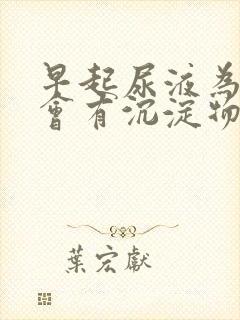 早起尿液為
會有沉淀物
葉宏獻